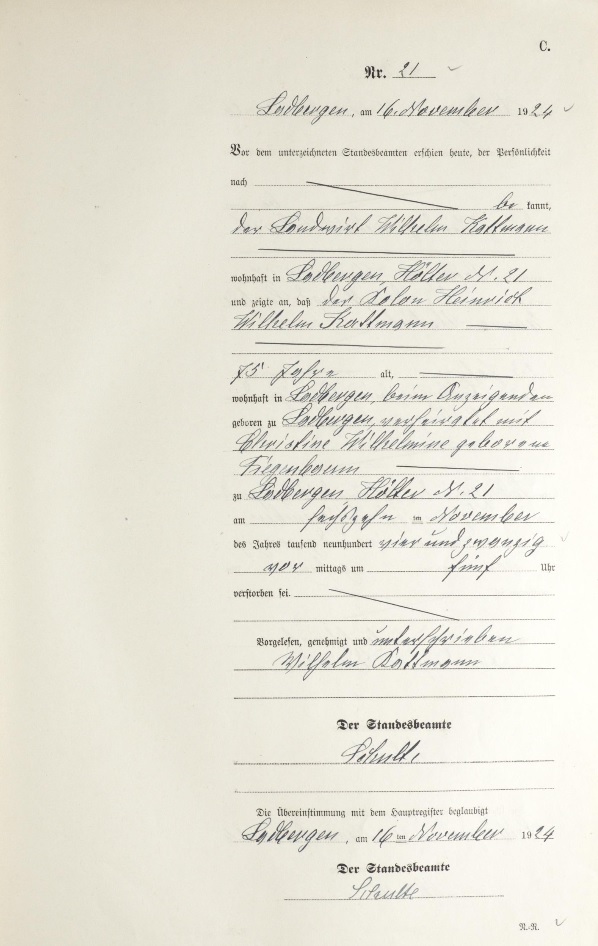 C.
Nr. 21
Ladbergen, am 16. November 1924
Vor dem unterzeichneten Standesbeamten erschien heute, der Persönlichkeit
nach
bekannt,
der Landwirt Wilhelm Kattmann
wohnhaft in Ladbergen, Hölter N. 21
und zeigte an, daß der Kolon Heinrich
Wilhelm Kattmann
75 Jahre alt,
wohnhaft in Ladbergen, beim Anzeigenden
geboren zu Ladbergen, verheiratet mit
Christine Wilhelmine geborene
Fiegenbaum
zu Ladbergen, Hölter N. 21
am sechszehn ten November
des Jahres tausend neunhundert vier und zwanzig
vor mittags um fünf Uhr
verstorben sei.
Vorgelesen, genehmigt und unterschrieben
Wilhelm Kattmann
Der Standesbeamte
Schulte
Die Übereinstimmung mit dem Hauptregister beglaubigt
Ladbergen, am 16 ten November 1924
Der Standesbeamte
Schulte
N.-R.